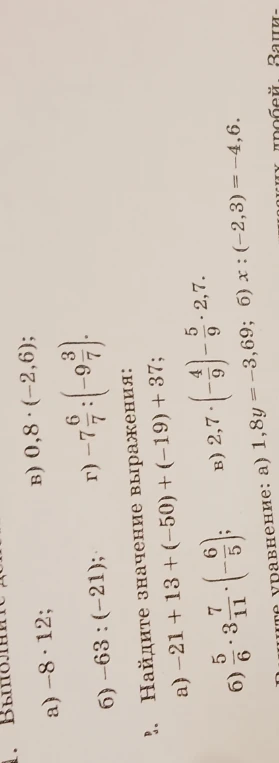 1. Выполните
а) −8 · 12; в) 0,8 · (−2,6);
б) −63 : (−21); г) −7 6/7 : (−9 3/7).
Найдите значение выражения:
а) −21 + 13 + (−50) + (−19) + 37;
б) 5/6 · 3 7/11 · (−6/5); в) 2,7 · (−4/9) − 5/9 · 2,7.
уравнение: а) 1,8y = −3,69; б) x : (−2,3) = −4,6.
дробей. Запи-